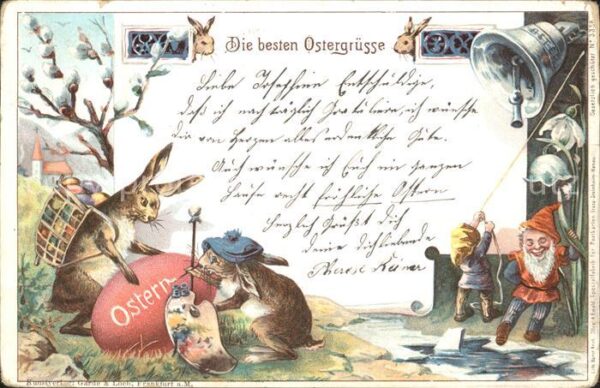 Die besten Ostergrüsse
Liebe Josephine Entschuldige,
daß ich nachträglich Gratuliere, ich wünsche
dir von Herzen alles erdenkliche Gute.
Auch wünsche ich Euch im ganzen
Hause recht fröhliche Ostern
Herzlich Grüßt Dich
deine Dichliebende
Therese
Ostern
Kunstverlag: Garde & Loeb, Frankfurt a.M.
Gesetzlich geschützt Nº 3358